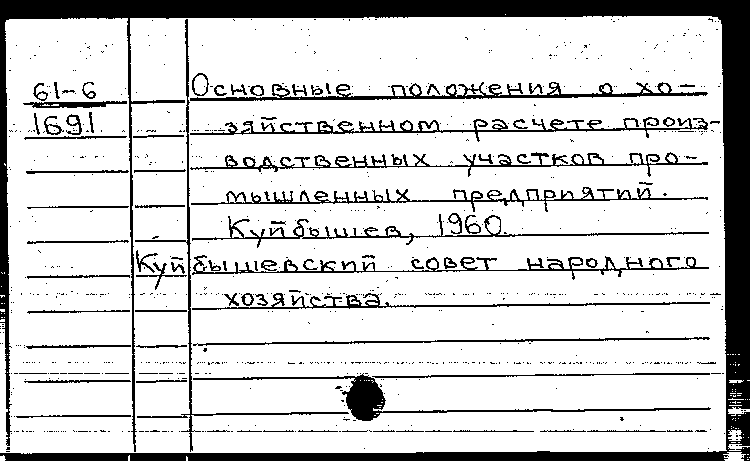 61-6 Основные положения о хо-
1691 зяйственном расчете произ-
водственных участков про-
мышленных предприятий.
Куйбышев, 1960.
Куйбышевский совет народного
хозяйства.